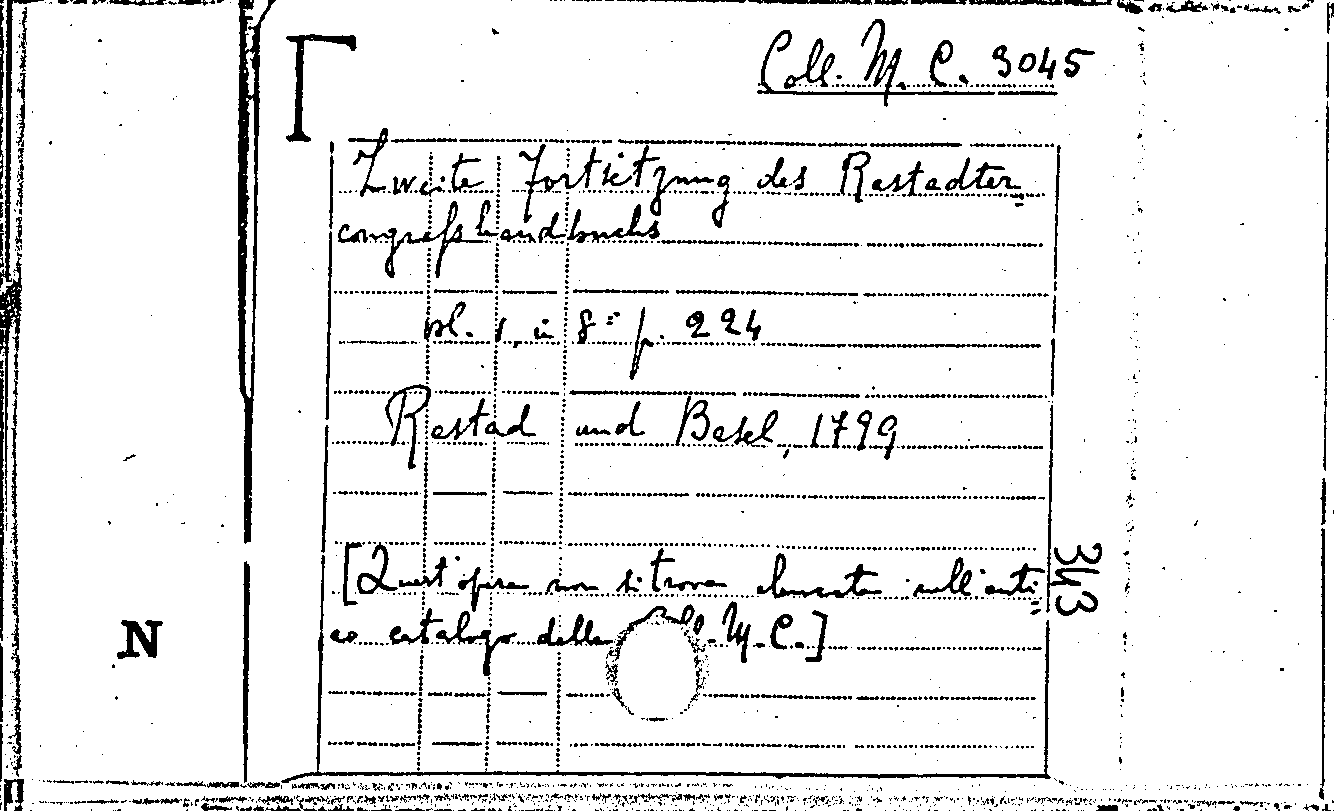 Coll. M. C. 3045
Zweite Fortsetzung des Rastadter=
congreſshandbuchs
vol. 1, in 8° p. 224
Rastad und Basel, 1799
[Quest'opera non si trova elencata nell'anti=
co catalogo della Coll. M.C.]
343
N